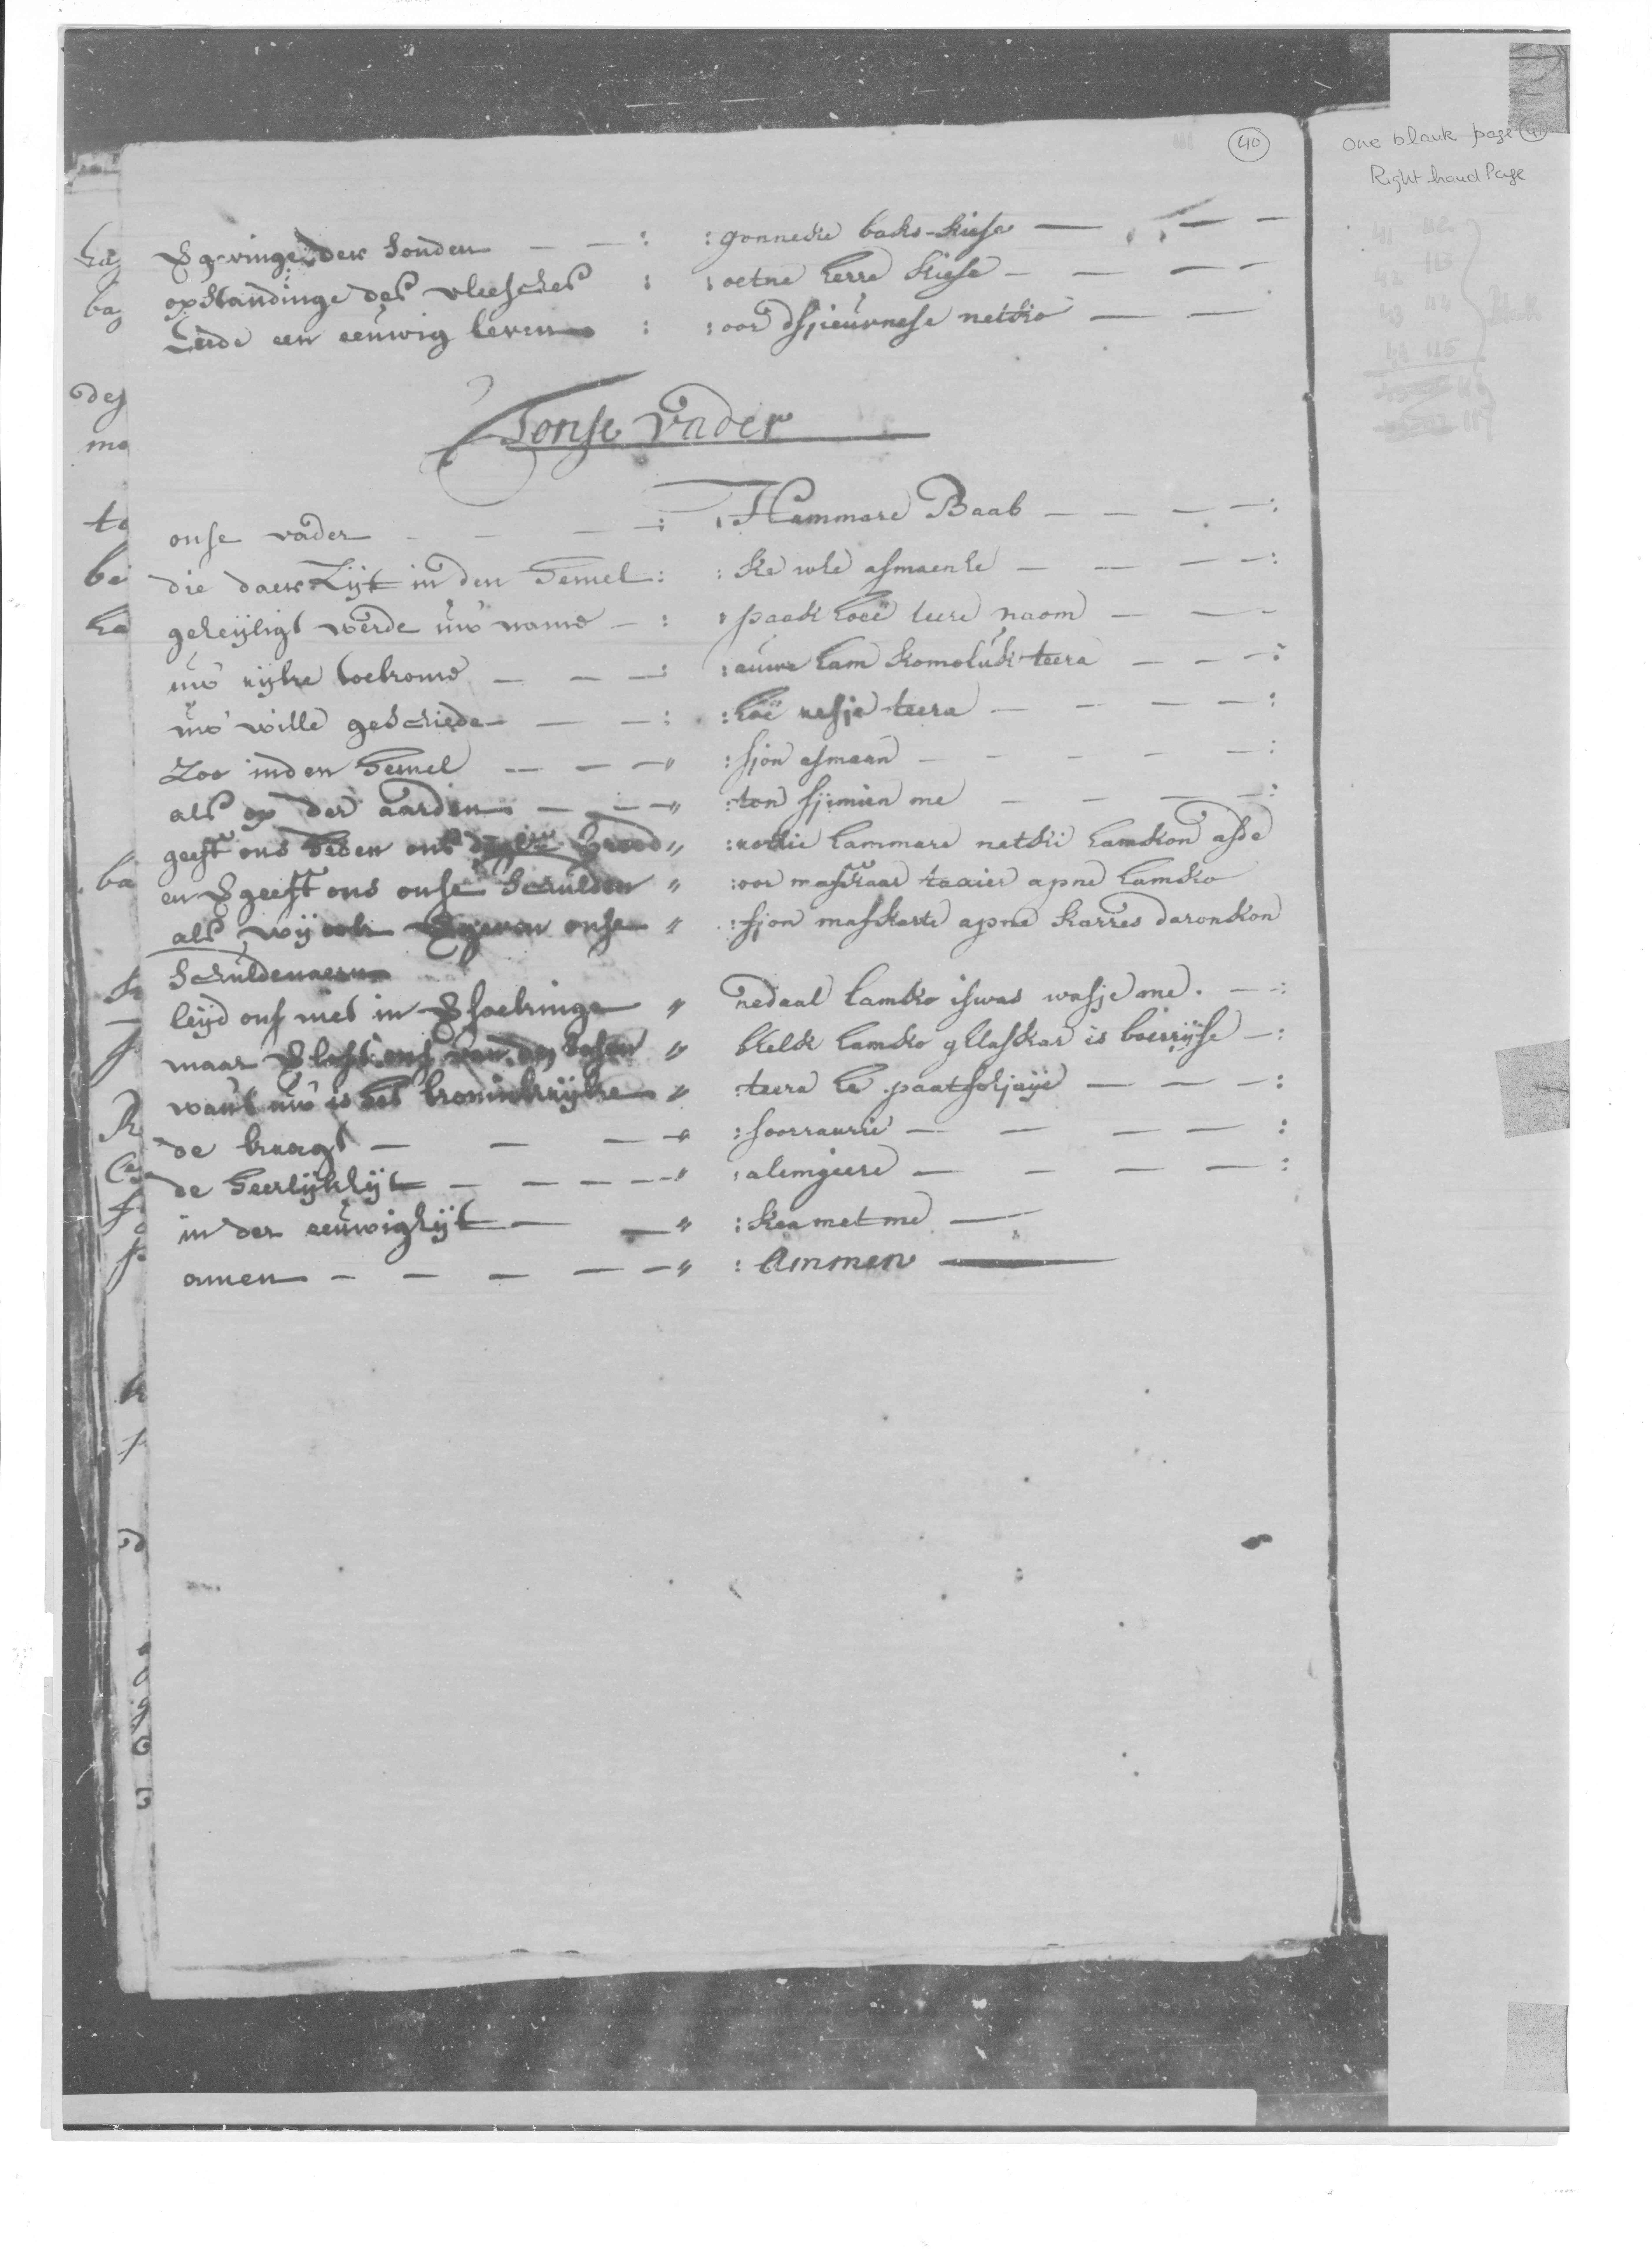 40
one blank page 41
Right hand Page
Vergevinge der Sonden — — : : gonneske backs-kiesse — —
opstandinge des vleesches : : oetne herre kiesse — — — —
Ende een eeuwig leven : : oor dsjieuwnese netsko — —
T'onse Vader
onse vader — — — : : Hammare Baab — — — — :
die daer Zijt in den Hemel : : ke whe asmaenhe — — — — :
geheijligt werde uw name — : : paak hoeë teere naom — — —
uw rijke toekome — — — : : auwe ham komoluk teera — — — :
uw wille geschiede — — — : : hoë nesje teera — — — — :
Zoo inden Hemel — — — " : sjon asmaan — — — — — :
als op der aarden — — — " : ton sjimien me — — — — :
geeft ons heden ons dagelix brood " : rottie hammare netski hamskon asde
en vergeeft ons onse Schulden " : oor maskaar taxier apne hamsko
als wij ook vergeven onse " : sjon maskarte apne karres daronskon
Schuldenaern
leijd ons niet in versoekinge " nedaal hamsko iswas wasje me. — :
maar verlost ons van den bosen " bkelsk hamsko gllaskar is boerijse — :
want uw is het koninkrijke " : teera he paatsoljaije — — — :
de kragt — — — — " : soorraurie — — — — :
de Heerlijkhijt — — — — — " : alemgiere — — — — :
in der eeuwighijt — — " : keamet me —
amen — — — — — " : Ammen —